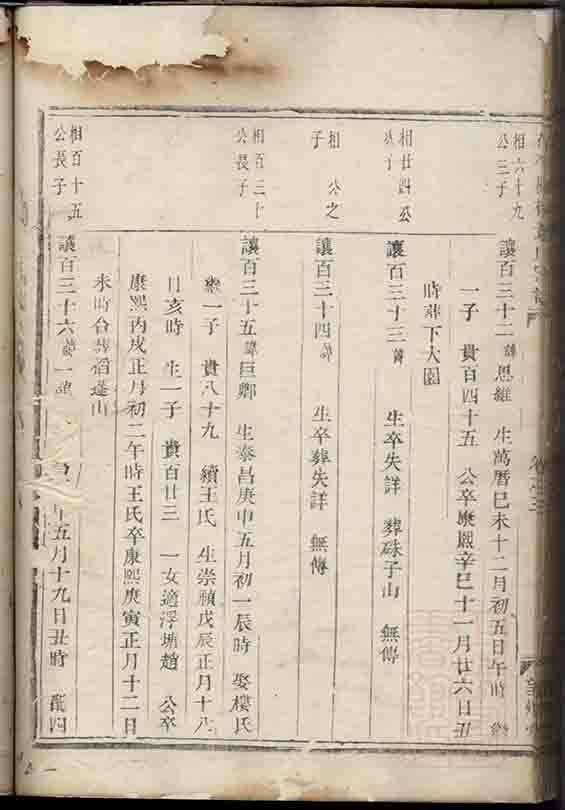 相六十九
公三子
讓百三十二諱思維 生萬曆己未十二月初五日午時
一子 貴百四十五 公卒康熙辛巳十一月廿六日丑
時葬下大園
相廿四公
次子
讓百三十三諱 生卒失詳 葬碌子山 無傳
相 公之
子
讓百三十四諱 生卒葬失詳 無傳
相百三十
公長子
讓百三十五諱巨卿 生泰昌庚申五月初一辰時 娶樓氏
一子 貴八十九 續王氏 生崇禎戊辰正月十八
日亥時 生一子 貴百廿三 一女適浮塘趙 公卒
康熙丙戌正月初二午時王氏卒康熙庚寅正月十二日
未時合葬宿蓬山
相百十五
公長子
讓百三十六諱一 年五月十九日丑時 配四